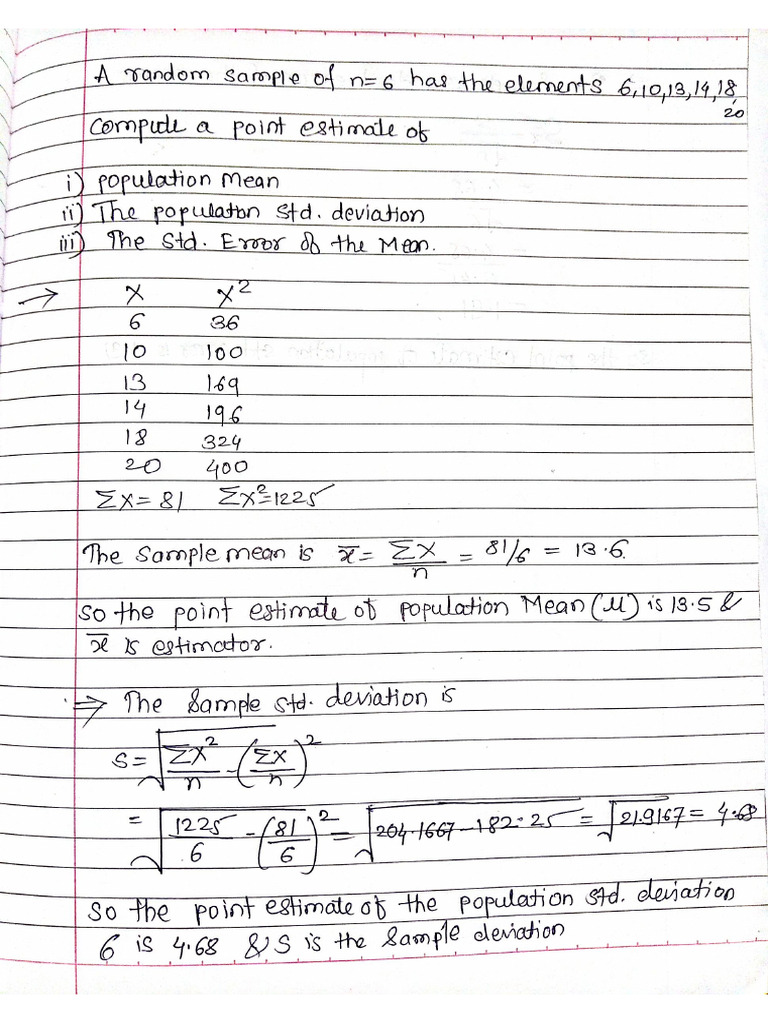 A random sample of n=6 has the elements 6,10,13,14,18,
20
Compute a point estimate of
i) population Mean
ii) The populaton std. deviation
iii) The Std. Error of the Mean.
→ X X²
6 36
10 100
13 169
14 196
18 324
20 400
ΣX=81 ΣX²=1225
The Sample mean is x̄ = ΣX/n = 81/6 = 13.6
so the point estimate of population Mean (μ) is 13.5 &
x̄ is estimator.
⇒ The Sample std. deviation is
S = √(ΣX²/n - (ΣX/n)²)
= √(1225/6 - (81/6)²) = √(204.1667-182.25) = √21.9167 = 4.68
So the point estimate of the population std. deviation
6 is 4.68 & S is the Sample deviation